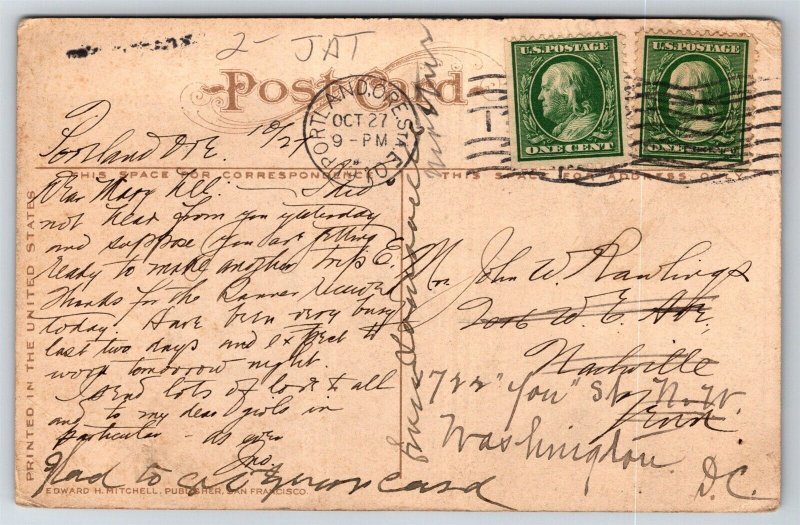 2- JAT
Post Card
U.S. POSTAGE
ONE CENT
U.S. POSTAGE
ONE CENT
PORTLAND, ORE. STA
OCT 27
9-PM
Portland Ore. 10/27
THIS SPACE FOR CORRESPONDENCE
THIS SPACE FOR ADDRESS ONLY
Dear Mary — I did
not hear from you yesterday
and suppose you are getting
ready to make another trip E.
Thanks for the Banner received
today. Have been very busy
last two days and expect to
work tomorrow night.
Send lots of love to all
and to my dear girls in
particular - as ever
Jno.
Glad to get your card
Mr John W. Rawlings
2016 W. E. Ave,
Nashville
Tenn
1722 "You" St. N.W.
Washington
D.C.
PRINTED IN THE UNITED STATES
EDWARD H. MITCHELL, PUBLISHER, SAN FRANCISCO.